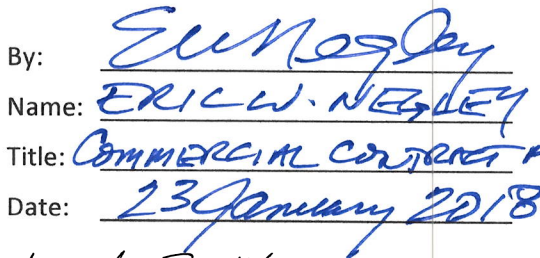 By: EWNegley
Name: ERIC W. NEGLEY
Title: COMMERCIAL CONTRACT
Date: 23 January 2018